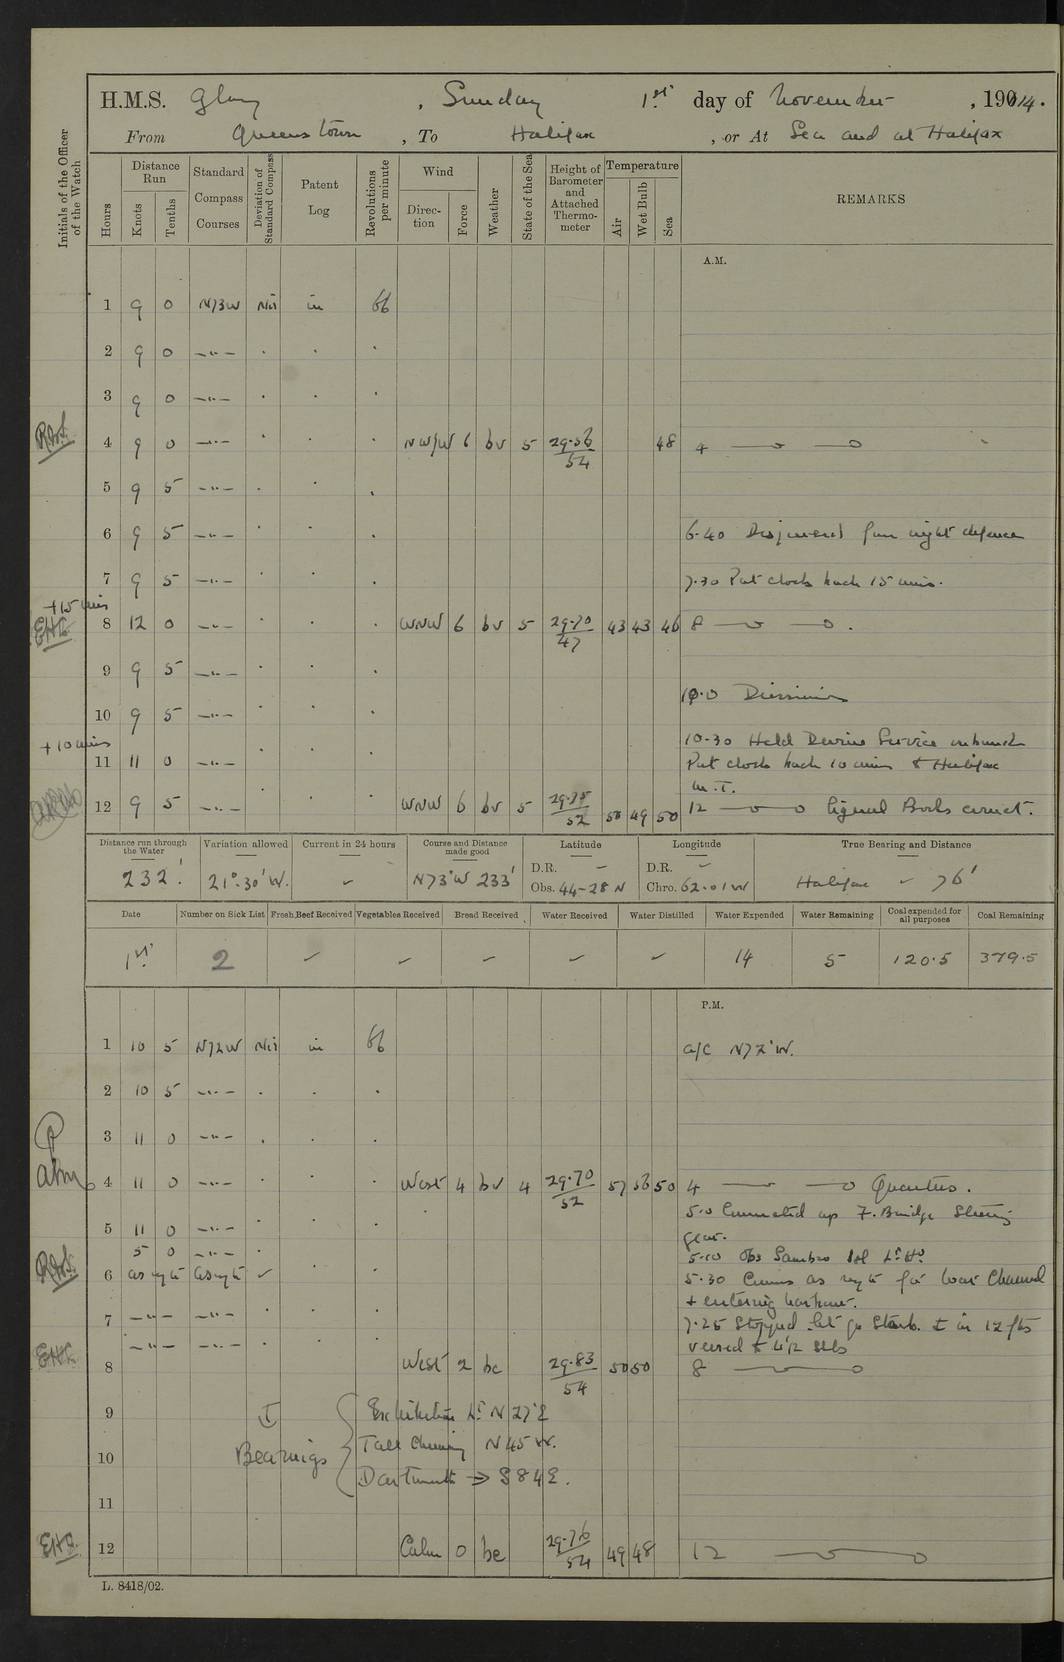 H.M.S. Glory , Sunday 1st day of November , 1914.
From Queenstown , To Halifax , or At Sea and at Halifax
Initials of the Officer of the Watch
Hours
Distance Run
Knots
Tenths
Standard Compass Courses
Deviation of Standard Compass
Patent Log
Revolutions per minute
Wind
Direction
Force
Weather
State of the Sea
Height of Barometer and Attached Thermometer
Temperature
Air
Wet Bulb
Sea
REMARKS
A.M.
1 9 0 N73W Nil in 66
2 9 0 —"— . . .
3 9 0 —"— . . .
4 9 0 —"— . . . NW/W 6 bv 5 29.56 54 48 4
5 9 5 —"— . . .
6 9 5 —"— . . . 6.40 from night defence
7 9 5 —"— . . . 7.30 Put clocks back 15 mins.
+15 mins
8 12 0 —"— . . . WNW 6 bv 5 29.70 47 43 43 46 8
9 9 5 —"— . . .
10.0 Divisions
10 9 5 —"— . . .
+10 mins
10-30 Held Devine Service
11 11 0 —"— . . . Put clocks back 10 mins to Halifax
M.T.
12 9 5 —"— . . . WNW 6 bv 5 29.75 52 50 49 50 12 Signal Books correct.
Distance run through the Water
Variation allowed
Current in 24 hours
Course and Distance made good
Latitude
Longitude
True Bearing and Distance
232'. 21°.30'W. N73°W 233' D.R. — Obs. 44-28 N D.R. — Chro. 62.01W Halifax — 76'
Date
Number on Sick List
Fresh Beef Received
Vegetables Received
Bread Received
Water Received
Water Distilled
Water Expended
Water Remaining
Coal expended for all purposes
Coal Remaining
1st 2 14 5 120.5 379.5
P.M.
1 10 5 N72W Nil in 66 a/c N72°W.
2 10 5 —"— . . .
3 11 0 —"— . . .
4 11 0 —"— . . . West 4 bv 4 29.70 52 57 56 50 4 Quarters.
5.0 Connected up F. Bridge Steering
5 11 0 —"— . . . gear.
5 0 —"— . 5.10 Obs Sambro Isl Lt Ho
6 as reqte as reqte . . 5.30 Courses as reqte for War Channel
+ entering harbour.
7 —"— —"— . . . 7.25 Stopped let go Starb. in 12 fms
—"— —"— . . . veered to 4½ shls
8 West 2 bc 29.83 54 50 50 8
9 Exhibition Lt N 27°E
Bearings
10 Tall Chimney N45W.
Dartmouth S84E.
11
12 Calm 0 bc 29.76 54 49 48 12
L. 8418/02.